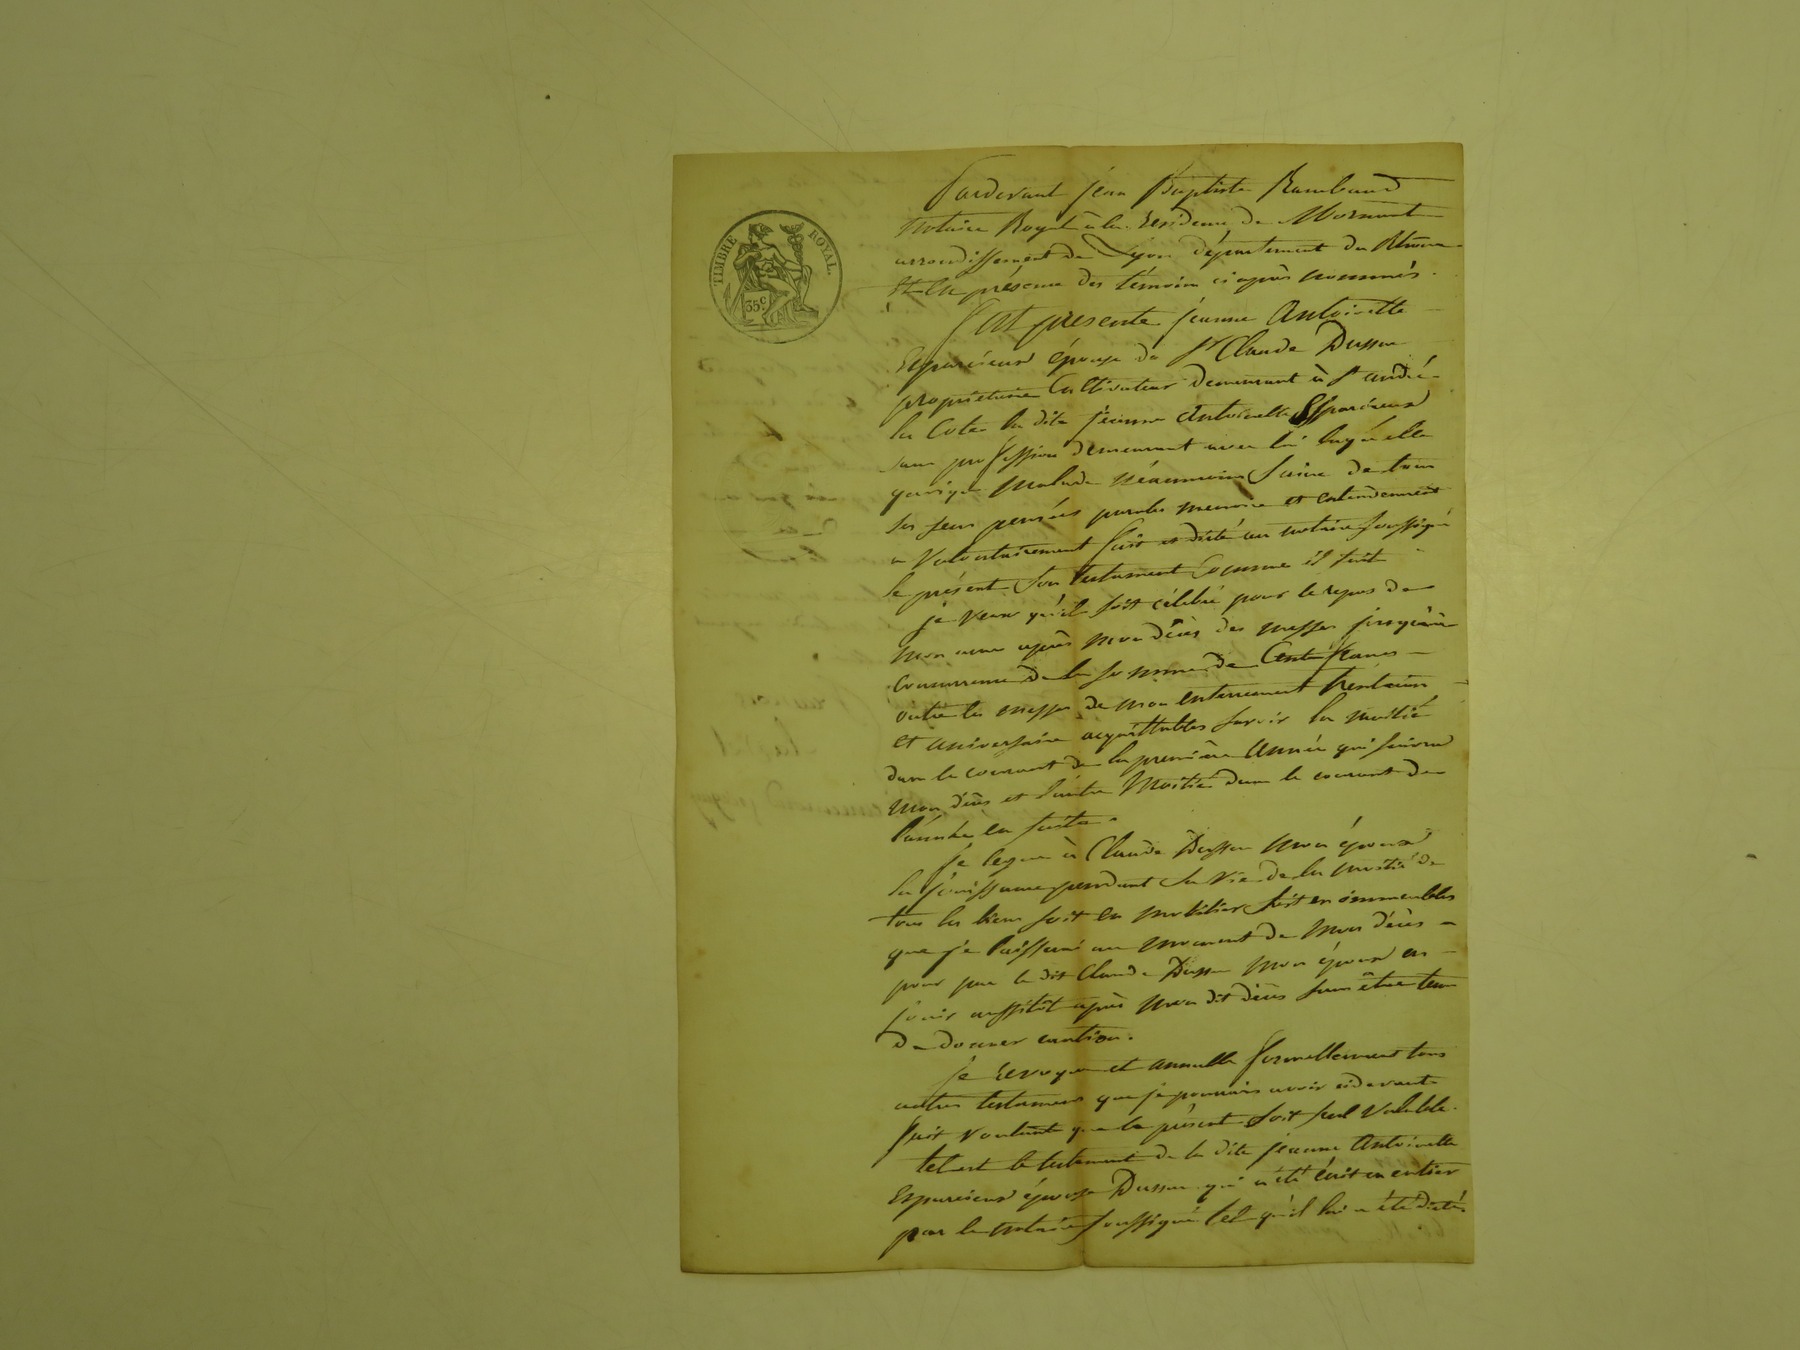 TIMBRE ROYAL.
35 c.
Pardevant jean Baptiste Rambaud
Notaire Royal à la Residence de Mornant
arrondissement de Lyon département du Rhone
Et en présence des témoins ci après nommés.
fut presente jeanne Antoinette
Esparcieux épouse de Sr Claude Dusson
propriétaire Cultivateur demeurant à St andré
la Cote la dite jeanne Antoinette Esparcieux
sans profession demeurant avec lui laquelle
quoique malade néanmoins saine de tous
ses sens pensées paroles memoire et entendement
a Volontairement fait et dicté au notaire soussigné
le présent son testament Comme il suit
je veux qu'il soit célébré pour le repos de
mon ame après mon décès des messes jusqu'à
concurrence de la somme de Cent francs
outre les messes de mon enterrement trentain
et aniversaire acquittables savoir la moitié
dans le courant de la première année qui suivra
mon décès et l'autre Moitié dans le courant de
l'année en suite.
je legue à Claude Dusson mon époux
la jouissance pendant sa vie de la moitié de
tous les biens soit en mobilier soit en immeubles
que je laisserai au moment de mon décès
pour par le dit Claude Dusson mon époux en
jouir aussitôt après mon dit décès sans être tenu
de donner caution.
je revoque et annulle formellement tous
autres testamens que je pourrais avoir cidevant
fait voulant que le présent soit seul valable.
tel est le testament de la dite jeanne Antoinette
Esparcieux épouse Dusson qui a été écrit en entier
par le notaire soussigné tel qu'il lui a été dicté